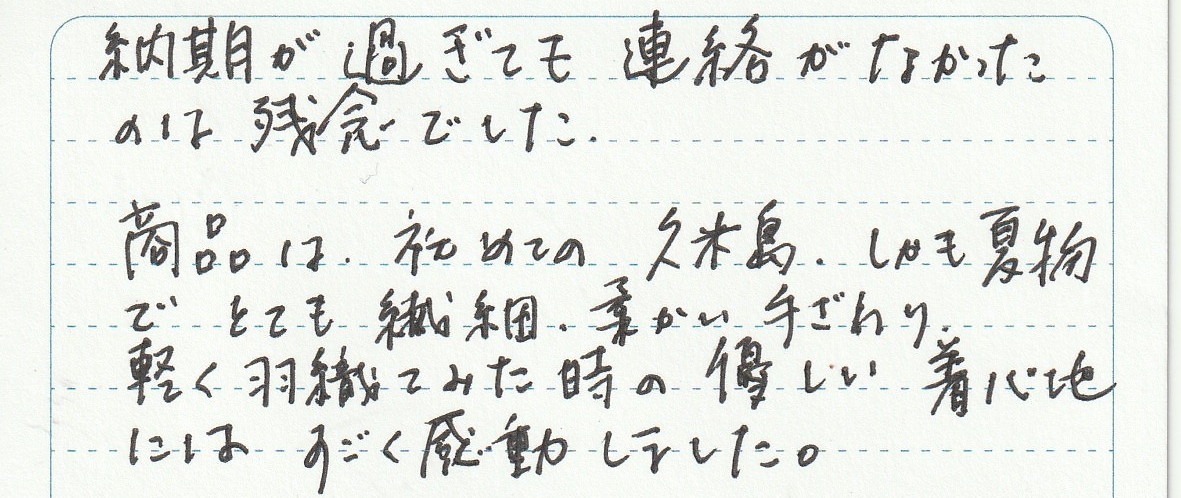 納期が過ぎても 連絡がなかった
のは 残念でした.
商品は. 初めての 久米島. しかも夏物
で とても 繊細. 柔かい 手ざわり.
軽く羽織てみた時の 優しい 着心地
には すごく感動しました。